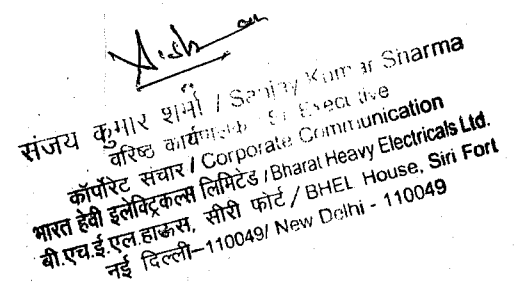 संजय कुमार शर्मा / Sanjay Kumar Sharma
वरिष्ठ कार्यपालक / Sr. Executive
कॉर्पोरेट संचार / Corporate Communication
भारत हेवी इलेक्ट्रिकल्स लिमिटेड / Bharat Heavy Electricals Ltd.
बी.एच.ई.एल.हाऊस, सीरी फोर्ट / BHEL House, Siri Fort
नई दिल्ली–110049/ New Delhi - 110049